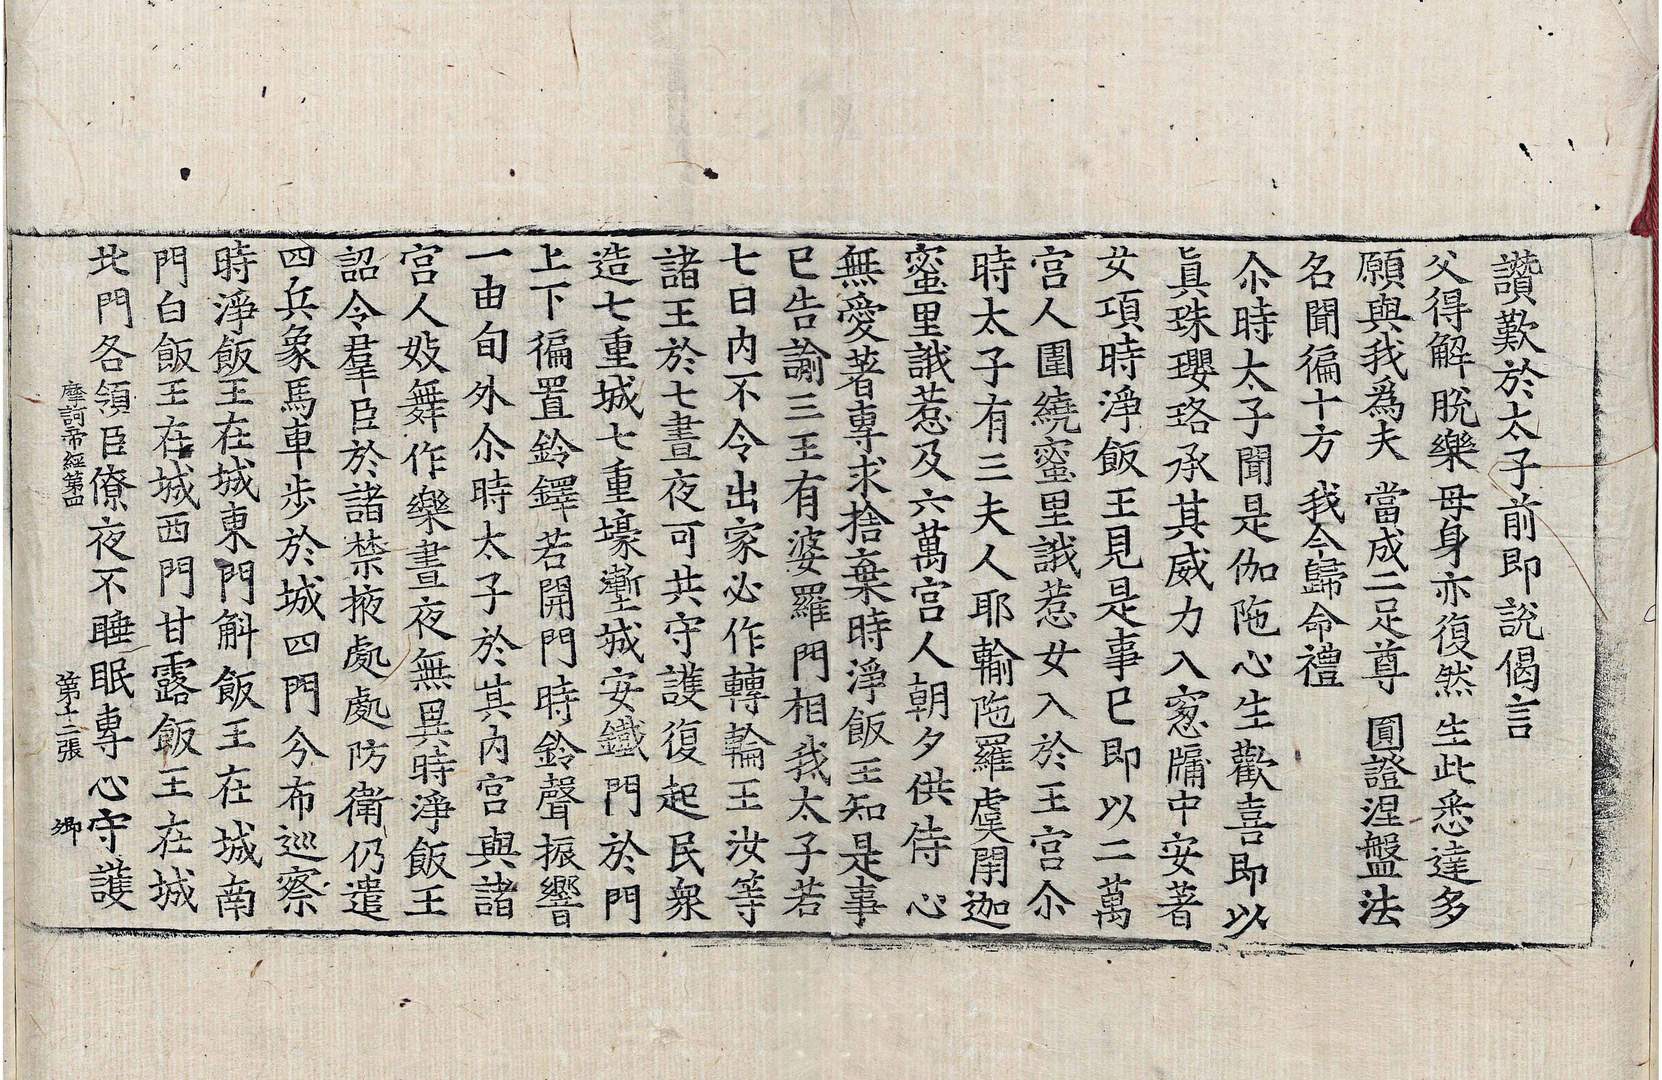 讚歎於太子前即說偈言
父得解脫樂 母身亦復然 生此悉達多
願與我爲夫 當成二足尊 圓證涅盤法
名聞徧十方 我今歸命禮
尒時太子聞是伽陁心生歡喜即以
眞珠瓔珞承其威力入窓牗中安著
女項時淨飯王見是事已即以二萬
宫人圍繞蜜里誐惹女入於王宫尒
時太子有三夫人耶輸陁羅虞閈迦
蜜里誐惹及六萬宫人朝夕供侍 心
無愛著專求捨棄時淨飯王知是事
已告諭三王有婆羅門相我太子若
七日内不令出家必作轉輪王汝等
諸王於七晝夜可共守護復起民衆
造七重城七重壕壍城安鐵門於門
上下徧置鈴鐸若開門時鈴聲振響
一由旬外尒時太子於其内宫與諸
宫人妓舞作樂晝夜無異時淨飯王
詔令羣臣於諸禁掖處處防衛仍遣
四兵象馬車步於城四門分布巡察
時淨飯王在城東門斛飯王在城南
門白飯王在城西門甘露飯王在城
北門各領臣僚夜不睡眠專心守護
摩訶帝經第四 第十二張 鄉